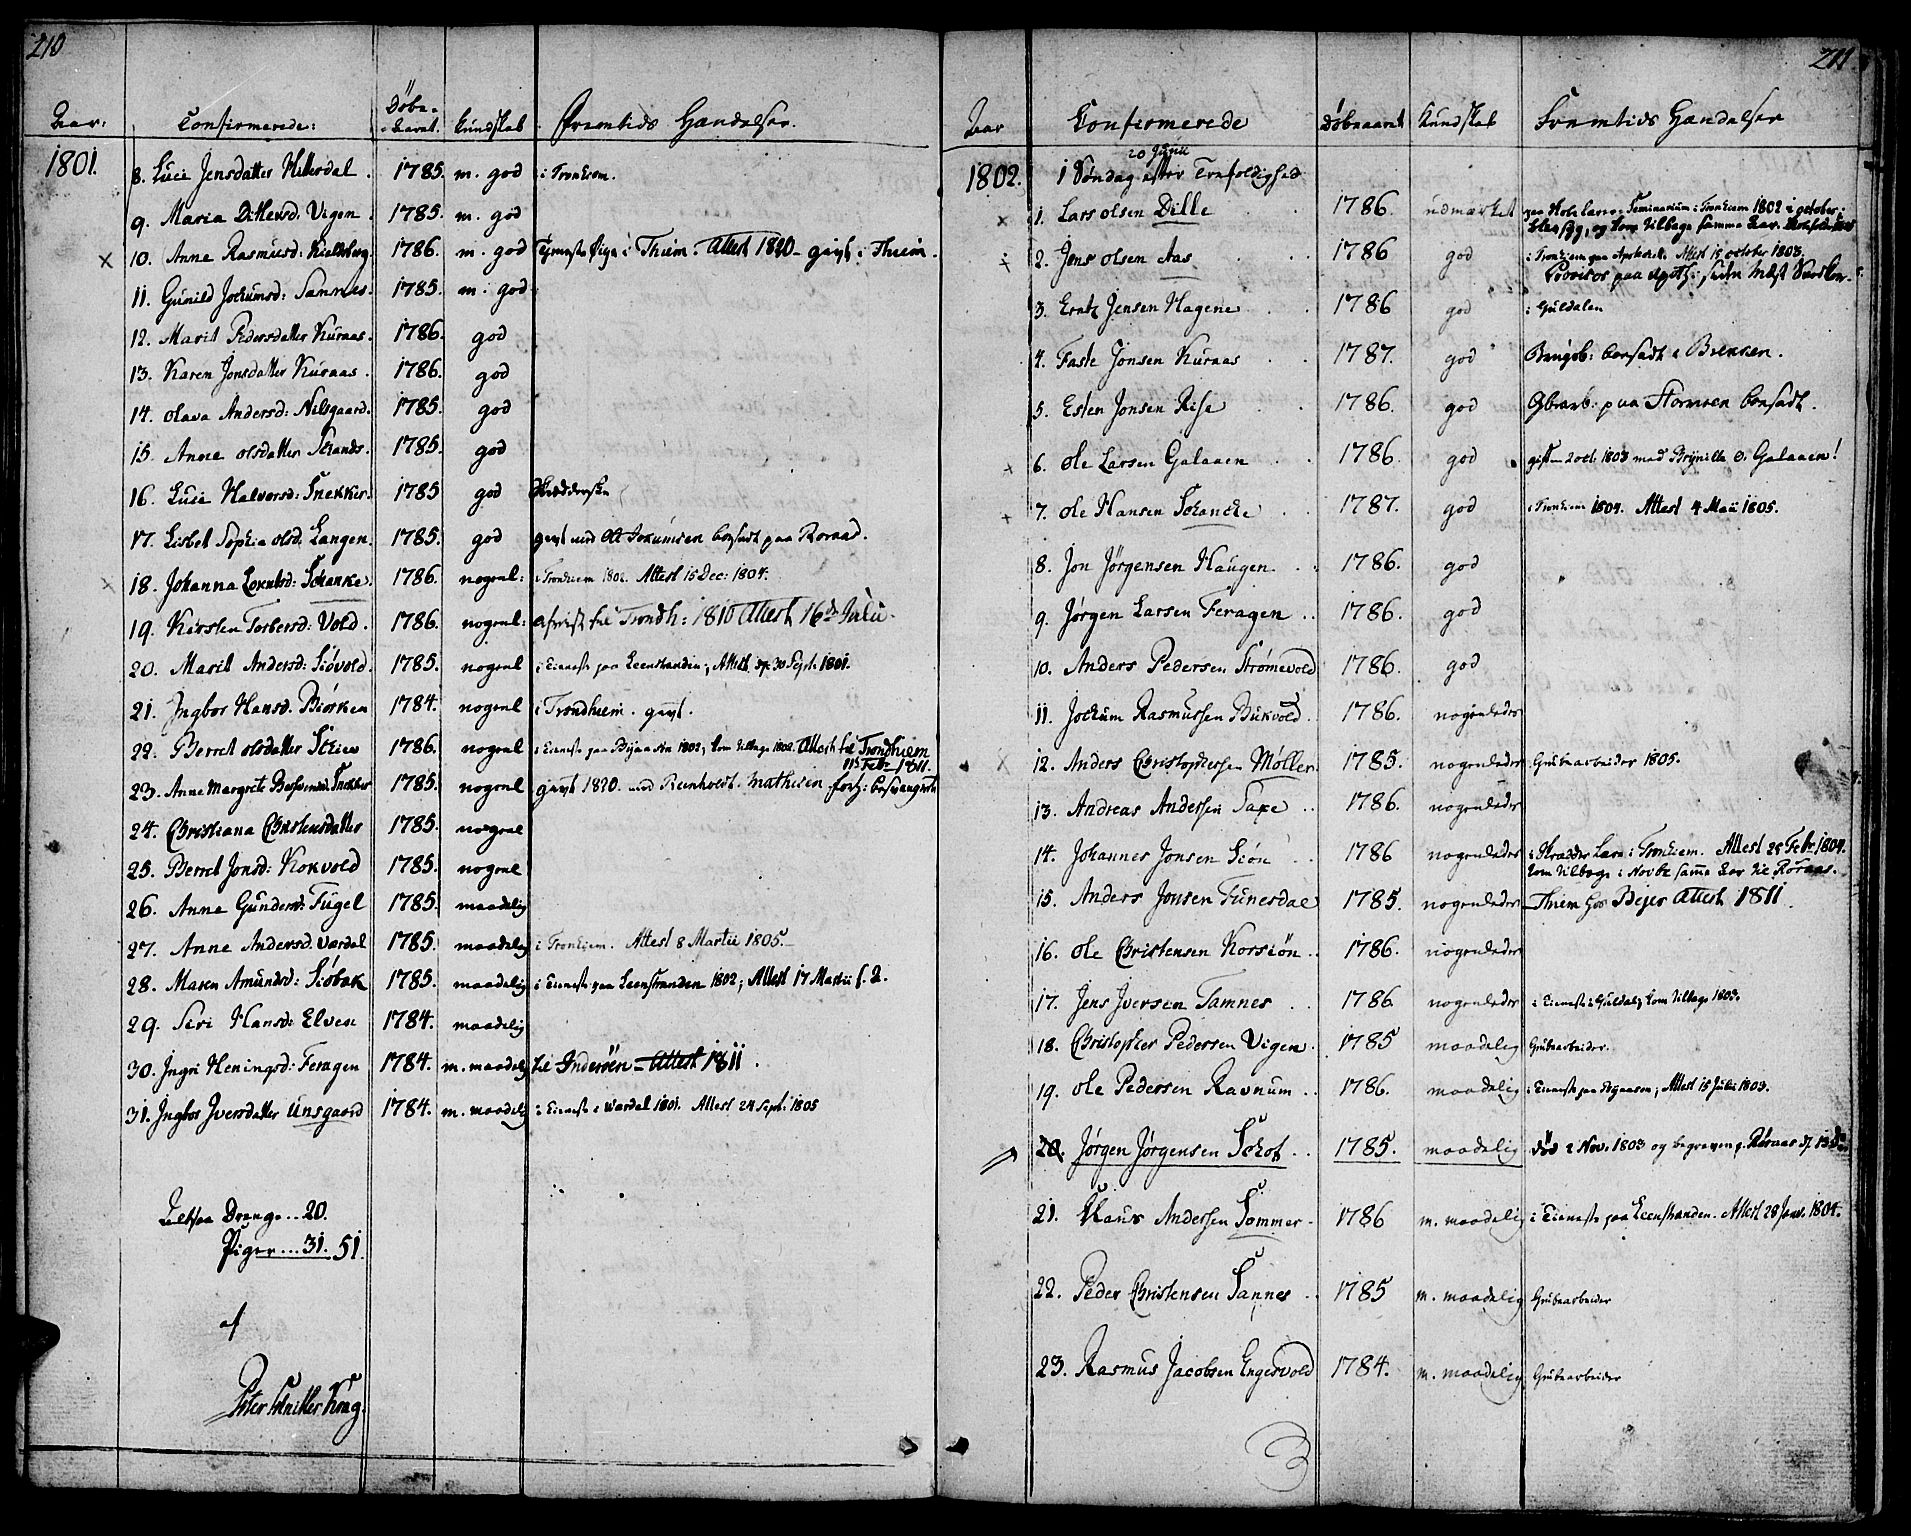 210
Aar: Confirmerede: Döbe-Aaret. Kundskab Fremtids Hændelser.
1801. 8. Luci Jensdatter Hitterdal. 1785. m. god i Tronhiem.
9. Maria Ditlevsd. Vigen. 1785. m. god
10. Anne Rasmusd: 1786. m. god Tienestepige i Thiem. Attest 1820 - givt i Thiem.
11. Gunild Jochumsd: Tamnes. 1785. m. god
12. Marit Pedersdatter Kuraas. 1786. god
13. Karen Jonsdatter Kuraas. 1786. god
14. Olava Andersd: Nilsgaard. 1785. god
15. Anne Olsdatter Strands. 1785. god
16. Luci Halvorsd: Snekker. 1785 god
17. Lisbet Sophia Olsd. Langen. 1785. god givt med bosadt paa Röraas.
18. Johanna Schanke. 1786. nogenl: i Tronhiem 1802. Attest 15 Dec: 1804.
19. Kirsten Torbersd: Vold. 1786. nogenl: afreist til Trondh: 1810 Attest 16de Julii.
20. Marit Andersd: Siövold. 1785. nogenl i Tieneste paa Leenstranden; Attest 30 Sept. 1801.
21. Ingbor Hansd. Biörken 1784. nogenl i Trondhiem. givt.
22. Berret Olsdatter 1786. nogenl i Tieneste paa 1802; kom tilbage 1802. Attest til Trondhiem
11 Febr 1811.
23. Anne Margrete Snekker 1785. nogenl givt 1820. med Reinholdt Mathisen
24. Christiana Christensdatter 1785. nogenl
25. Berret Jonsd: Kokvold 1785. nogenl
26. Anne Gundersd: Fugel 1785. maadelig
27. Anne Andersd. Værdal 1785. maadelig i Tronhiem. Attest 8 Martii 1805.
28. Maren Amundsd: Siöbak 1785. maadelig i Tieneste paa Leenstranden 1802; Attest 17 Martii
29. Siri Hansd: Elven 1784. maadelig
30. Ingri Heningsd: Feragen 1784. m. maadelig til Inderöen - Attest 1811.
31. Ingbor Iversdatter Unsgaard 1784. m. maadelig i Tieneste i Værdal 1801. Attest 24 Sept: 1805
Altsaa Drenge... 20.
Piger... 31. 51.
af
Peter Schnitler Krag.
211
Aar Confirmerede Döbeaaret Kundskab Fremtids Hændelser
20 Junii
1802. 1 Söndag efter Trefoldighed
1. Lars Olsen Dille 1786. udmærket paa Seminarium i Tronhiem 1802 i october;
og kom tilbage samme Aar.
2. Jens Olsen Aas 1786 god i Tronhiem paa Apotheket. Attest 15 october 1803.
Provisor paa
3. Jensen Hagene 1786 god i Guldalen
4. Faste Jonsen Kuraas 1787. god bosadt i Brekken.
5. Esten Jonsen Rise 1786. god paa bosadt.
6. Ole Larsen Galaaen 1786. god gift 2 oct. 1803 med Brynilla O. Galaaen!
7. Ole Hansen Schancke 1787. god i Tronhiem 1804. Attest 4 Maii 1805.
8. Jon Jörgensen Haugen. 1786. god
9. Jörgen Larsen Feragen 1786. god
10. Anders Pedersen Strömevold 1786. god
11. Jochum Rasmussen Bukvold. 1786. nogenledes
12. Anders Christophersen Möller 1785. nogenledes Grubearbeider 1805.
13. Andreas Andersen Saxe 1786. nogenledes
14. Johannes Jonsen Siön 1786 nogenledes i Skrædder Lære i Tronhiem. Attest 25 Febr. 1804.
kom tilbage i Novbr samme Aar til Röraas.
15. Anders Jonsen Funesdal 1785. nogenledes Thiem hos Bejer Attest 1811.
16. Ole Christensen Korssiön 1786. nogenledes
17. Jens Iversen Tamnes 1786 nogenledes i Tieneste i Guldal; kom tilbage 1803.
18. Christopher Pedersen Vigen. 1785 maadelig Grubearbeider.
19. Ole Pedersen Ravnum 1786. maadelig i Tieneste paa Attest 15 Julii 1803.
20. Jörgen Jörgensen Schot 1785. maadelig död 2 Nov. 1803 og begraven p. Röraas d 13 ds
21. Klaus Andersen Sommer 1786 m. maadelig i Tieneste paa Leenstranden. Attest 28 Jan. 1804.
22. Peder Christensen Sannes 1785 m. maadelig Grubearbeider
23. Rasmus Jacobsen Engesvold 1784. m. maadelig Grubearbeider